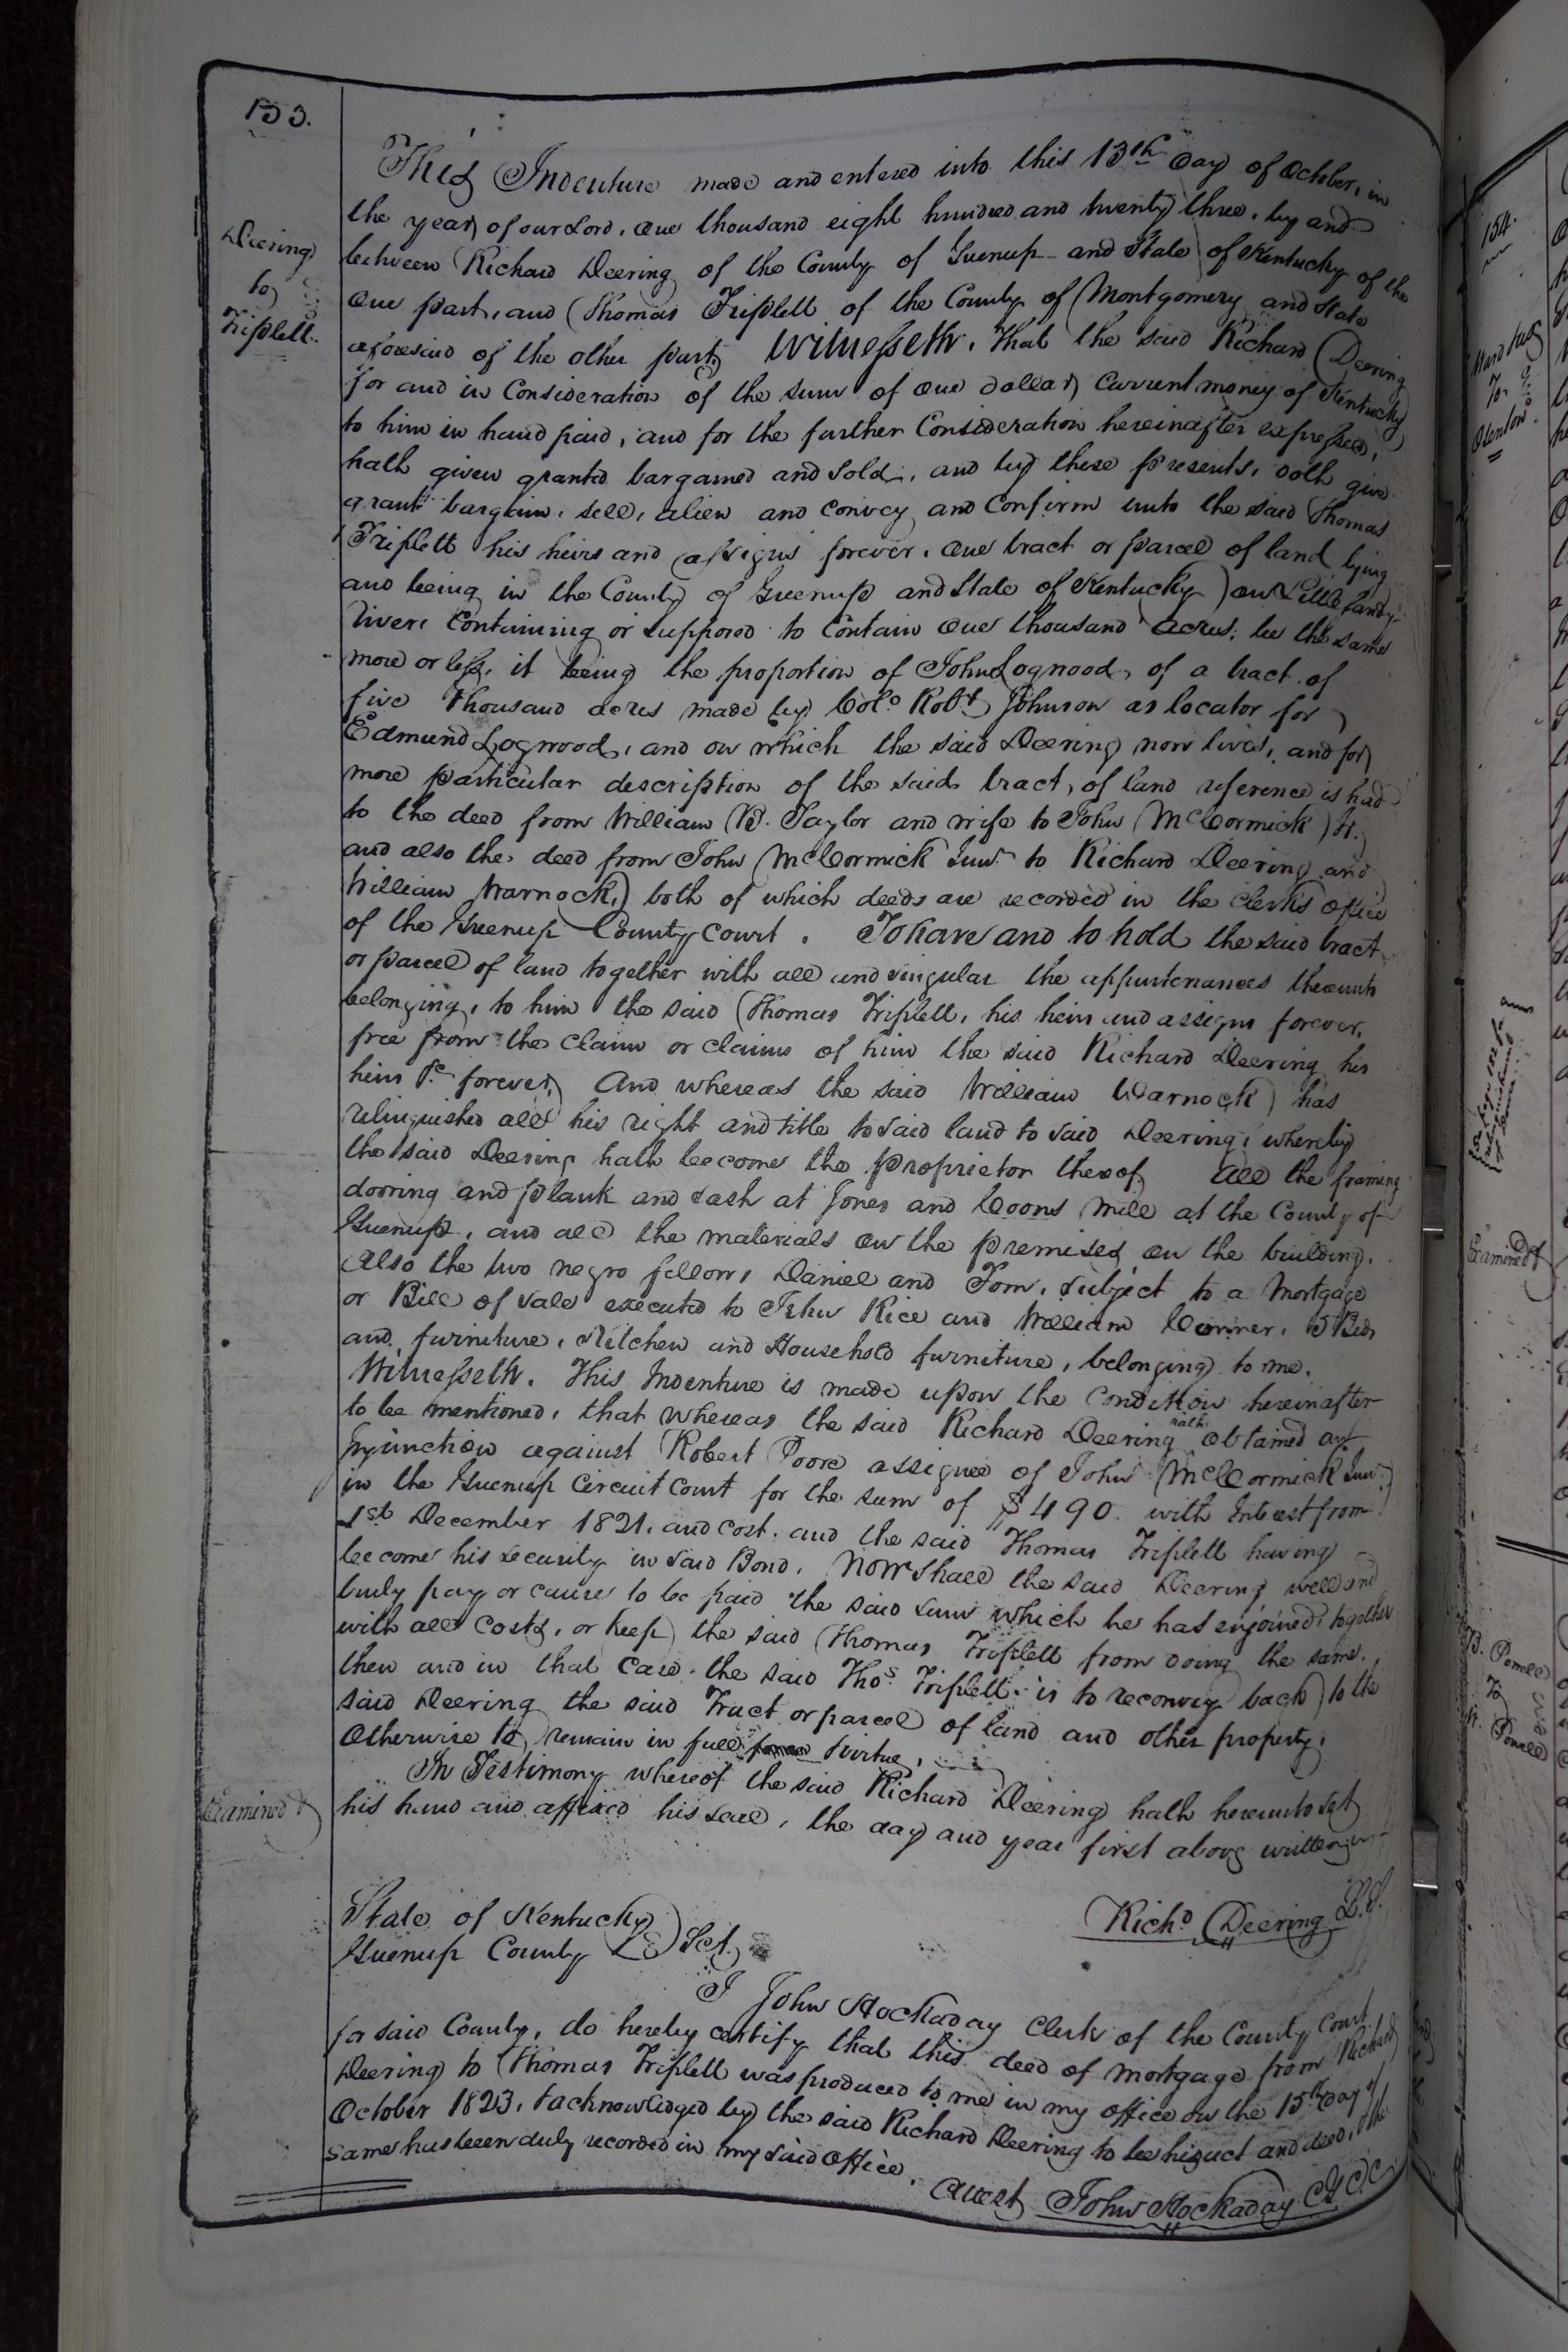 153.
Deering
to
Triplett.
This Indenture made and entered into this 13th day of October, in
the year of our Lord, one thousand eight hundred and twenty three, by and
between Richard Deering of the County of Greenup and State of Kentucky of the
one part, and Thomas Triplett of the County of Montgomery and State
aforesaid of the other part, Witnesseth, That the said Richard Deering
for and in Consideration of the sum of one dollar current money of Kentucky
to him in hand paid, and for the further Consideration hereinafter expressed,
hath given granted bargained and sold, and by these presents, doth give
grant bargain, sell, alien and convey and Confirm unto the said Thomas
Triplett his heirs and assigns forever, one tract or parcel of land lying
and being in the County of Greenup and State of Kentucky on Little Sandy
river, Containing or supposed to Contain one thousand acres, be the same
more or less, it being the proportion of John Logwood, of a tract of
five thousand acres made by Colo. Robt. Johnson as locator for
Edmund Logwood, and on which the said Deering now lives, and for
more particular description of the said tract, of land reference is had
to the deed from William B. Taylor and wife to John McCormick Jr.
and also the deed from John McCormick Junr to Richard Deering and
William Warnock, both of which deeds are recorded in the clerks office
of the Greenup County Court. To have and to hold the said tract
or parcel of land together with all and singular the appurtenances thereunto
belonging, to him the said Thomas Triplett, his heirs and assigns forever,
free from the claim or claims of him the said Richard Deering his
heirs &c forever, And whereas the said William Warnock has
relinquished all his right and title to said land to said Deering, whereby
the said Deering hath become the proprietor thereof, all the framing
dooring and plank and sash at Jones and Coons Mill at the County of
Greenup, and all the materials on the premises on the building.
Also the two negro fellows Daniel and Tom, subject to a Mortgage
or Bill of sale executed to John Rice and William Conner, 5 Beds
and furniture, Kitchen and Household furniture, belonging to me.
Witnesseth. This Indenture is made upon the condition hereinafter
to be mentioned, that whereas the said Richard Deering hath obtained an
Injunction against Robert Poore assignee of John McCormick Junr.
in the Greenup Circuit Court for the sum of $490. with Interest from
1st December 1821. and cost. and the said Thomas Triplett having
become his security in said Bond. Now shall the said Deering well and
truly pay or cause to be paid the said sum which he has enjoined, together
with all Costs, or keep the said Thomas Triplett from doing the same.
then and in that case the said Thos Triplett is to reconvey back to the
said Deering the said Tract or parcel of land and other property,
Otherwise to remain in full virtue,
In Testimony whereof the said Richard Deering hath hereunto set
his hand and affixed his seal, the day and year first above written
Examined
Richd Deering L.S.
State of Kentucky
Greenup County Sct.
I John Hockaday Clerk of the County Court
for said County, do hereby certify that this deed of mortgage from Richard
Deering to Thomas Triplett was produced to me in my office on the 15th day of
October 1823, & acknowledged by the said Richard Deering to be his act and deed, & the
same has been duly recorded in my said office.
Attest John Hockaday C.G.C.C.
154.
To
Examined
B. Powell
To
Powell